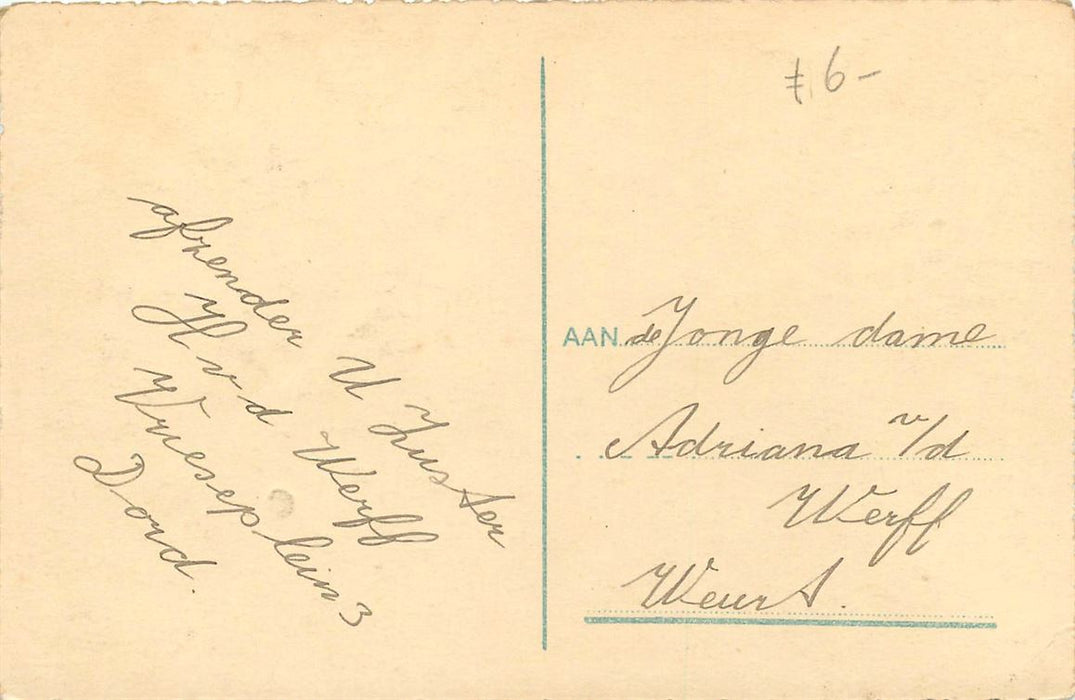 afzender U Zuster
H v d Werff
Vrieseplein 3
Dord.
f. 6-
AAN de Jonge dame
Adriana v/d
Werff
Weurt.